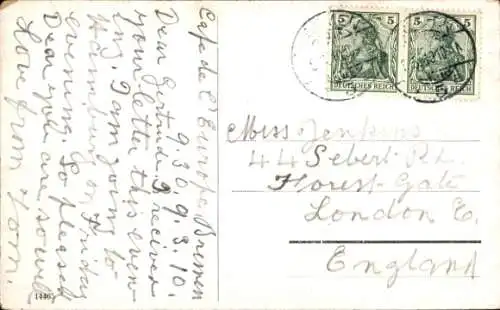 Cafe de l'Europe, Bremen
9.30. 9.3.10.
Dear Gertrude, I received
your letter this even-
ing. I am going to
Hamburg on Friday
evening. So pleased
Dear you are so well
Love from Tom.
14465
5 5
DEUTSCHES REICH
5 5
DEUTSCHES REICH
Miss Jenkins
44 Sebert Rd.
Forest-Gate
London E.
England